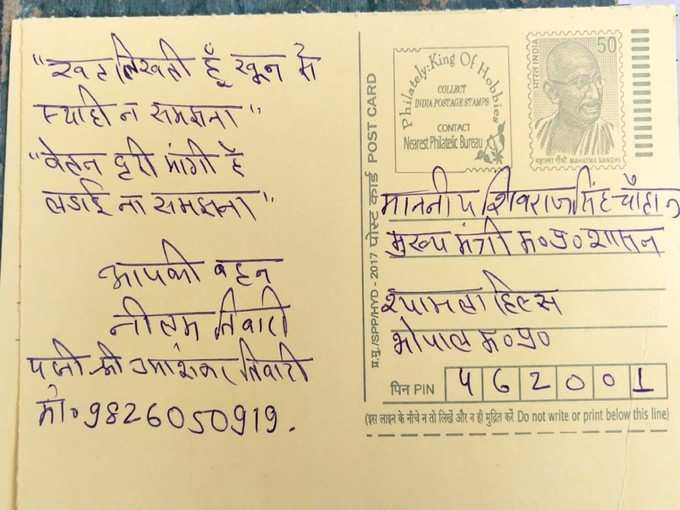 "खत लिखती हूँ खून से
स्याही न समझना"
"वेतन ही मांगी है
लडाई ना समझना"
आपकी बहन
नीलम तिवारी
पत्नी श्री उमाशंकर तिवारी
मो॰ 9826050919.
प्र.मु./SPP/HYD - 2017 पोस्ट कार्ड POST CARD
Philately: King Of Hobbies
COLLECT
INDIA POSTAGE STAMPS
CONTACT
Nearest Philatelic Bureau
भारत INDIA
50
महात्मा गाँधी MAHATMA GANDHI
माननीय शिवराज सिंह चौहान
मुख्य मंत्री म॰प्र॰ शासन
श्यामला हिल्स
भोपाल म॰प्र॰
पिन PIN 462001
(इस लाइन के नीचे न तो लिखें और न ही मुद्रित करें Do not write or print below this line)